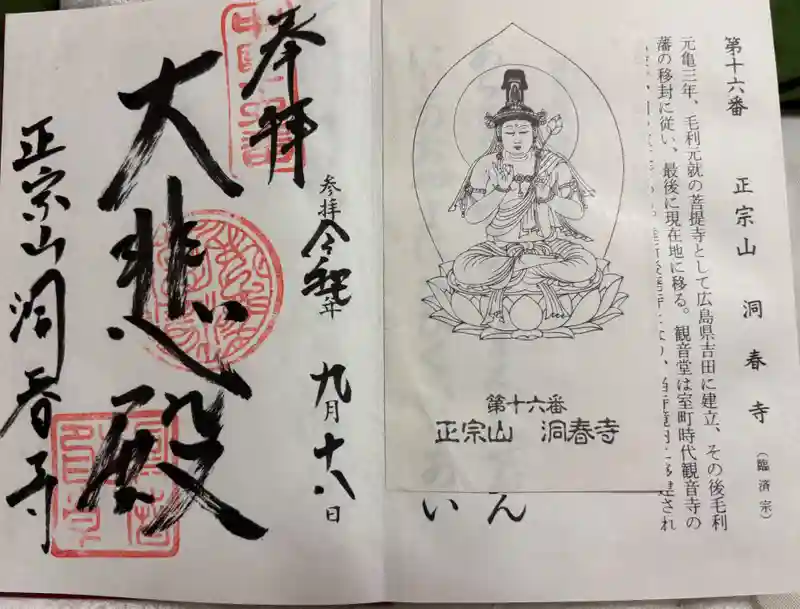 第十六番　正宗山　洞春寺（臨済宗）
元亀三年、毛利元就の菩提寺として広島県吉田に建立、その後毛利
藩の移封に従い、最後に現在地に移る。観音堂は室町時代観音寺の
第十六番
正宗山　洞春寺
ん
い
奉拝
参拝令和
年
九月十八日
大悲殿
正宗山洞春寺